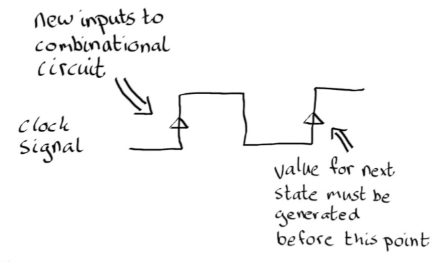 New inputs to
combinational
circuit
Clock
Signal
Value for next
state must be
generated
before this point